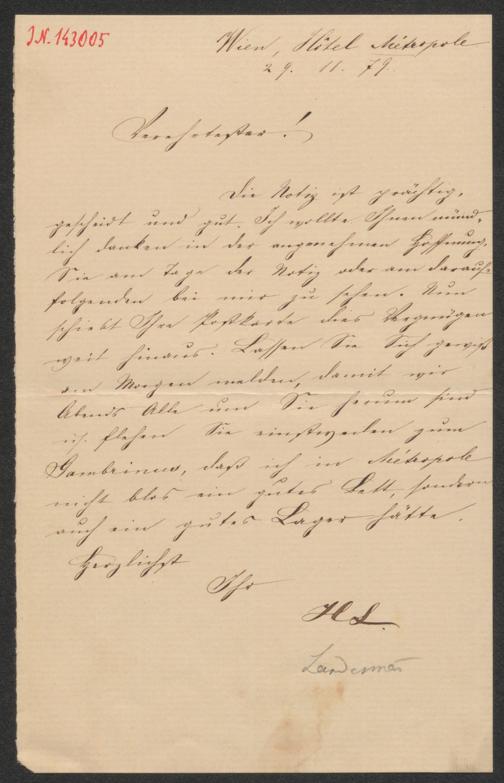 J.N. 143005
Wien, Hôtel Métropole
29. 11. 79.
Verehrtester!
Die Notiz ist prächtig,
gescheidt und gut. Ich wollte Ihnen münd-
lich danken in der angenehmen Hoffnung,
Sie am Tage der Notiz oder am darauf-
folgenden bei mir zu sehen. Nun
schiebt Ihre Postkarte dies Vergnügen
weit hinaus. Lassen Sie sich gewiß
am Morgen melden, damit wir
Abends Alle um Sie herum sind
u. flehen Sie einstweilen zum
Gambrinus, daß ich in Métropole
nicht blos ein gutes Bett, sondern
auch ein gutes Lager hätte.
Herzlichst
Ihr
HL.